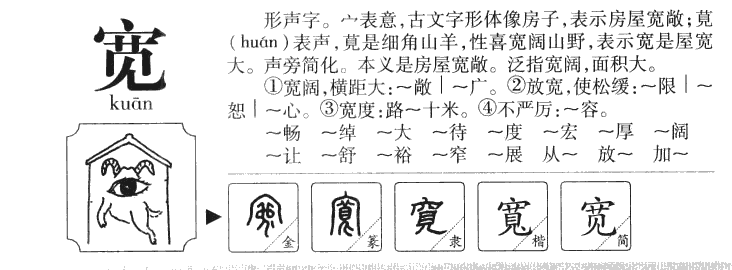 宽
kuān
形声字。宀表意，古文字形体像房子，表示房屋宽敞；萈
（huán）表声，萈是细角山羊，性喜宽阔山野，表示宽是屋宽
大。声旁简化。本义是房屋宽敞。泛指宽阔，面积大。
①宽阔，横距大：～敞｜～广。②放宽，使松缓：～限｜～
恕｜～心。③宽度：路～十米。④不严厉：～容。
～畅 ～绰 ～大 ～待 ～度 ～宏 ～厚 ～阔
～让 ～舒 ～裕 ～窄 ～展 从～ 放～ 加～
金 篆 隶 楷 简
寬 寬 宽